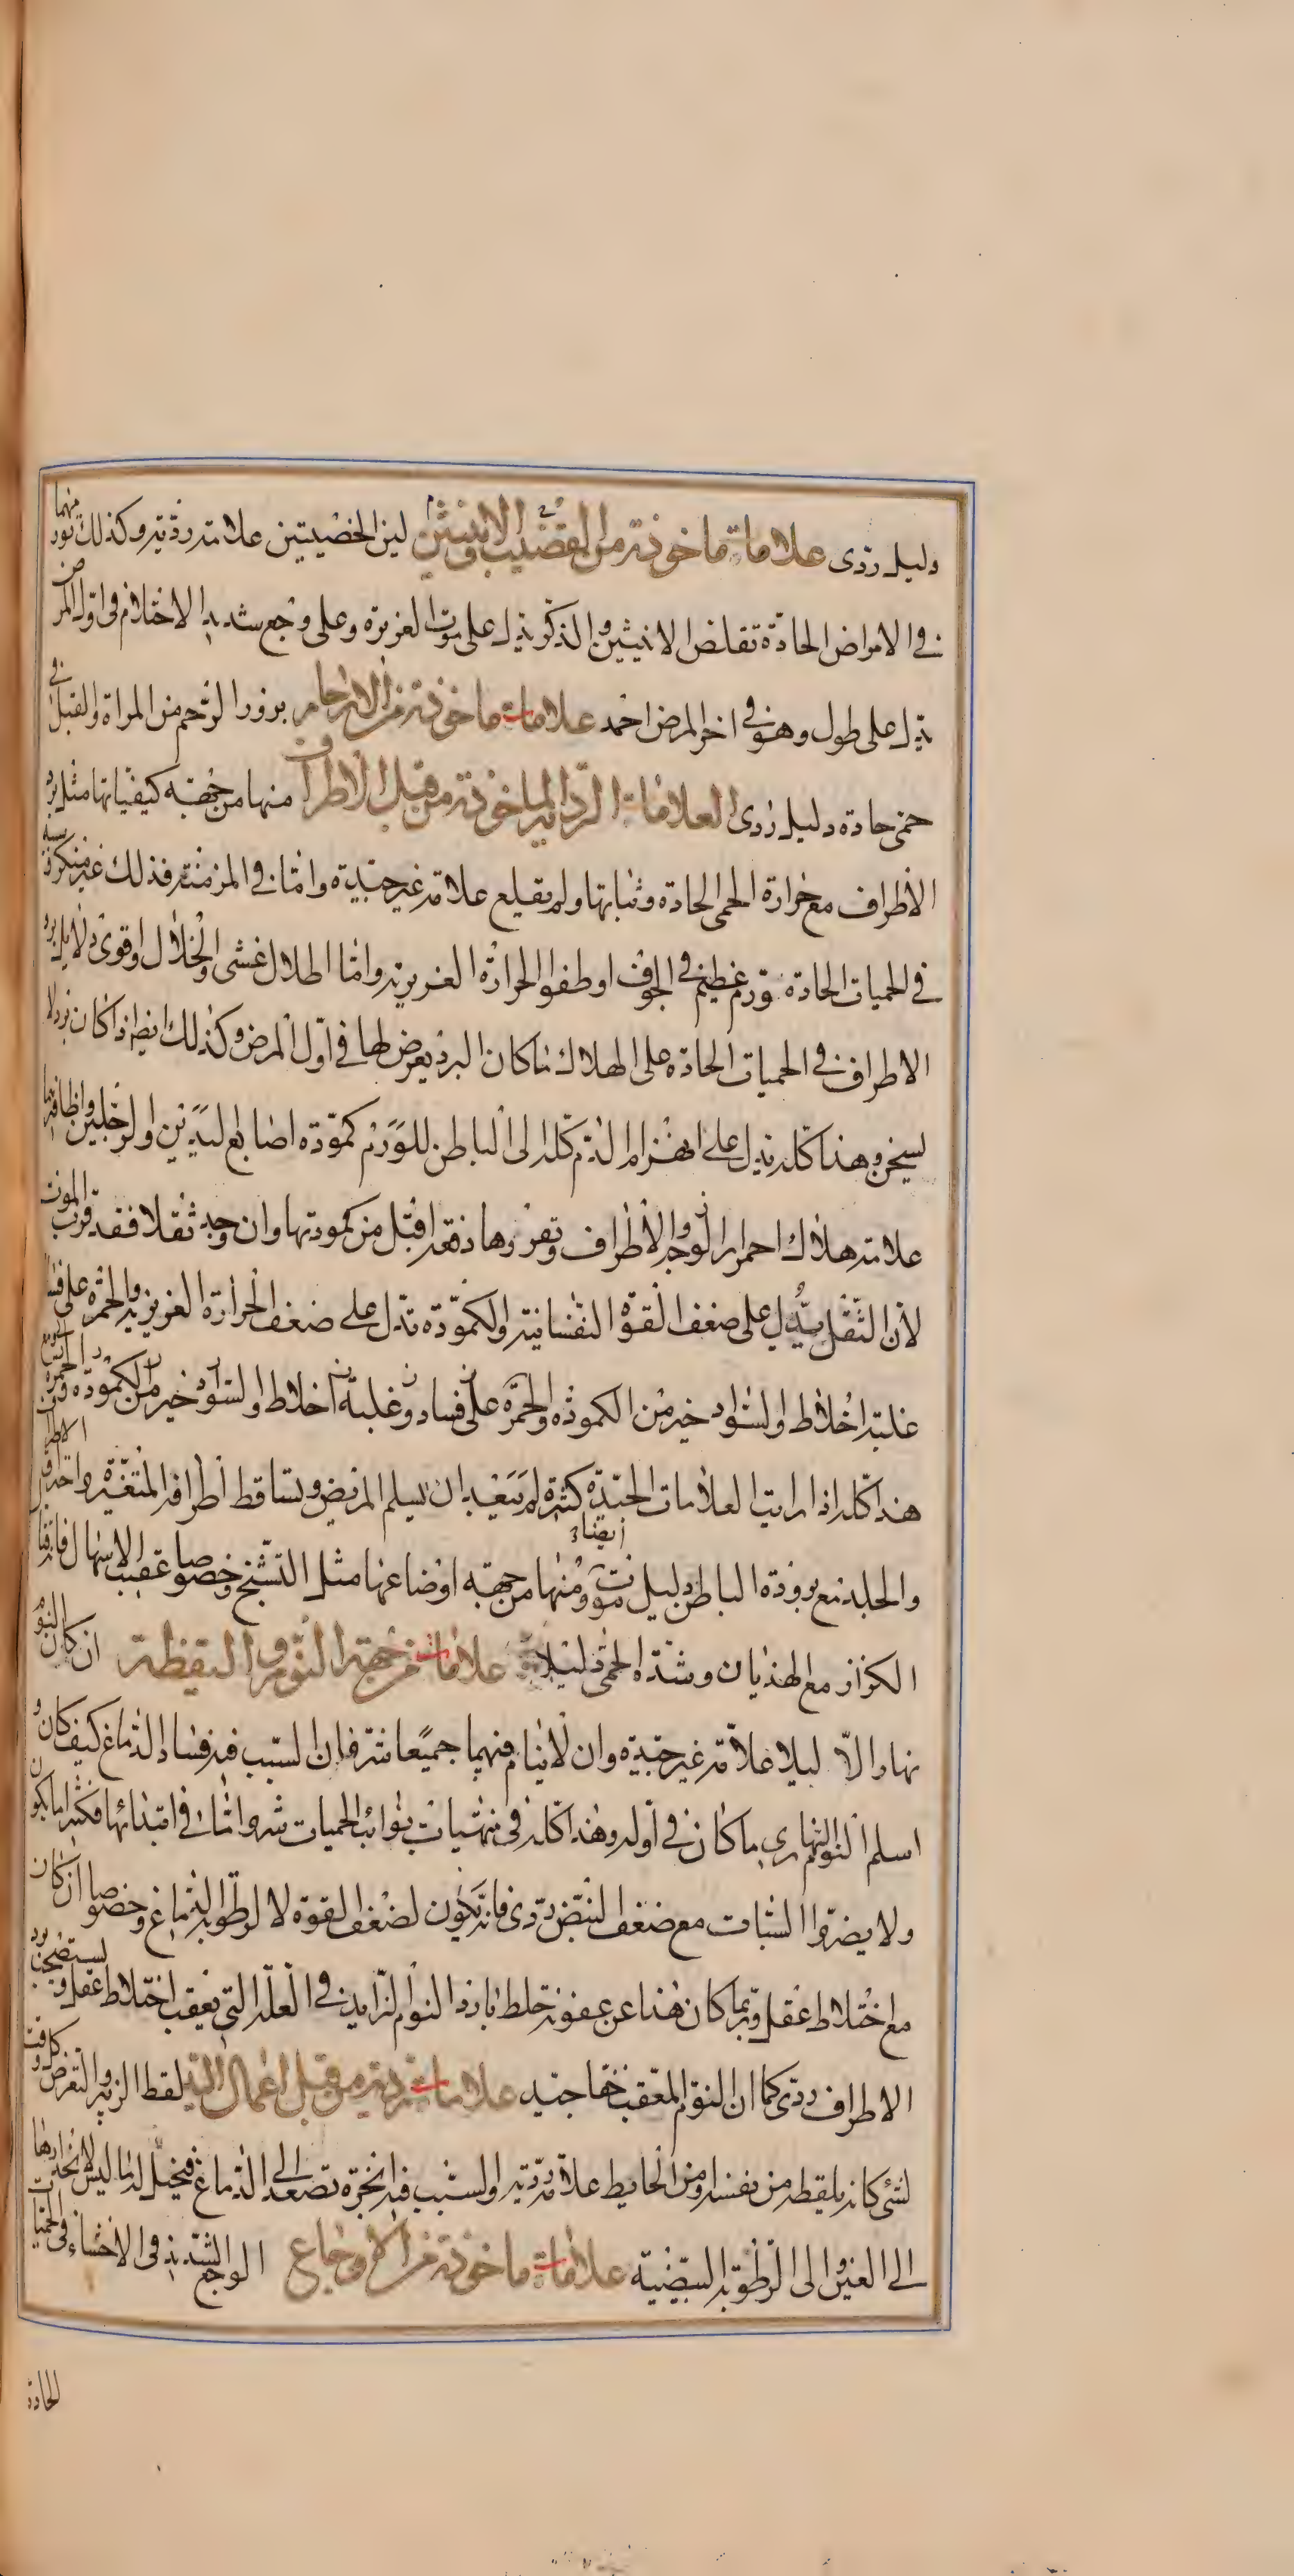 دليل ردى علامات ماخوذة من القضيب والانثيين لين الخصيتين علامة رديّة وكذلك تورمهما
في الامراض الحادّة تقلص الانثيين والذكر يدل على موت الغريزة وعلى وجع شديد الاحتلام فى اول المرض
يدل على طول وهو في اخر المرض احمد علامات ماخوذة من الارحام بروز الرحم من المراة والقبل في
حمى حادة دليل ردى العلامات الرديّة الماخوذة من قبل الاطراف منها من جهة كيفياتها مثل برد
الاطراف مع حرارة الحمى الحادة وثباتها ولم تقلع علامة غير جيدة وامّا في المزمنة فذلك غير منكر وسببه
في الحميات الحادة تورم عظيم في الجوف او طفو الحرارة الغريزية وامّا اطلال غشى وانحلال اوقوى دلايل برد
الاطراف في الحميات الحادة على الهلاك ما كان البرد يعرض لها في اوّل المرض وكذلك ايضا اذا كان برد لا
يسخن وهذا كلّه يدل على انهزام الدم كلّه الى الباطن للورم كمودة اصابع اليدين والرجلين واظافرهما
علامة هلاك احمرار الوجه والاطراف وتفزرها ذفقد اقتل من كمودتها وان وجد ثقلا فقد قرب الموت
لان الثقل يدل على ضعف القوّة النفسانية والكمودة تدل على ضعف الحرارة الغريزية والحمرة على فساد
غلبة اخلاط والسواد خير من الكمودة والحمرة على فساد وغلبة اخلاط والسواد خير من الكمودة والحمرة
هذا كلّه اذا رايت العلامات الجيّدة كثيرة لم يبعد ان يسلم المريض وتساقط اطرافه المتغيّرة واحتراق الاطراف
والجلد مع برودة الباطن دليل موت ايضا ومنها من جهة اوضاعها مثل التشنج وخصوصا عقيب الاسهال فانه قتال
الكزاز مع الهذيان وشدّة الحمى دليل علامات من جهة النوم واليقظة ان كان النوم
نهارا لا ليلا علامة غير جيّدة وان لا ينام فيهما جميعا شرّ فان السبب فيه فساد الدماغ كيف كان و
اسلم النوم النهاري ما كان في اوله وهذا كلّه في منتهيات نوائب الحميات شر وامّا في ابتدائها فكثيرا ما يكون
ولا يضر والسبات مع ضعف النبض ردى فانه يكون لضعف القوة لا لرطوبة الدماغ وخصوصا ان كان
مع اختلاط عقل وربما كان هذا عن عفونة خلط بارد النوم الزايد في العلّة التي يعقب اختلاط عقل وبرد
الاطراف ردى كما ان النوم المعقب خفا جيد علامات رديّة من قبل اعمال اليد لقط الزئبر والتعرض كل وقت
لشئ كانه يلقطه من نفسه او من الحايط علامة رديّة والسبب فيه ابخرة تصعد الى الدماغ فيخيل له ما ليس لانحدارها
الى العين والى الرطوبة البيضية علامات ماخوذة من الاوجاع الوجع الشديد فى الاحشاء فى الحميات
الحادة